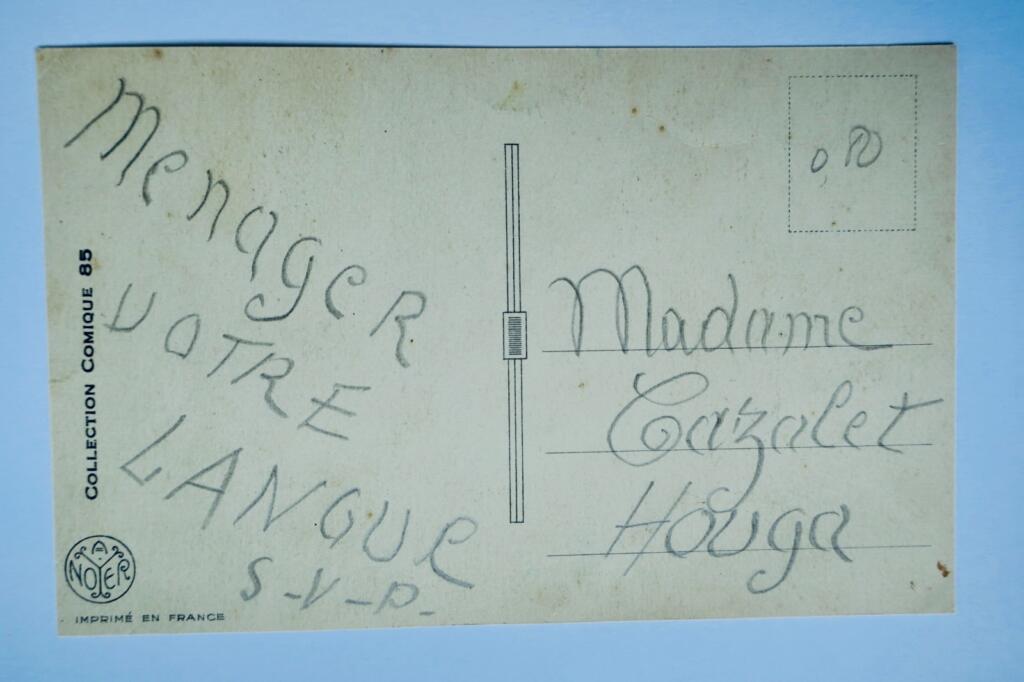 Menager
VOTRE
LANGUE
S-V-P-
0,80
Madame
Cazalet
Houga
COLLECTION COMIQUE 85
A NOYER
IMPRIMÉ EN FRANCE